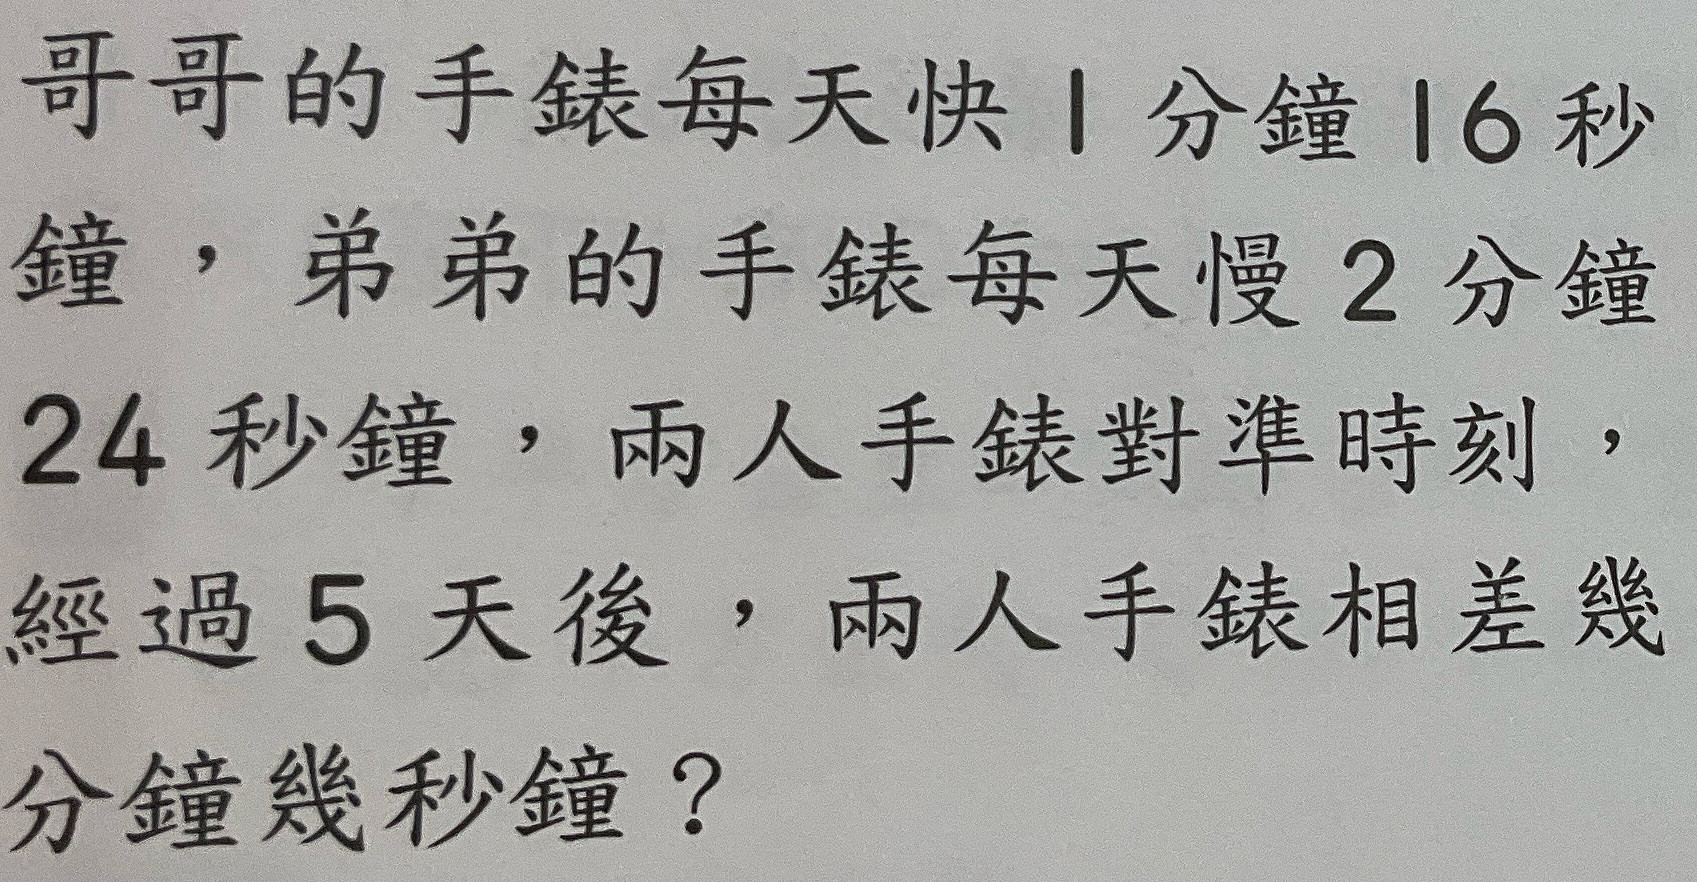 哥哥的手錶每天快1分鐘16秒
鐘，弟弟的手錶每天慢2分鐘
24秒鐘，兩人手錶對準時刻，
經過5天後，兩人手錶相差幾
分鐘幾秒鐘？